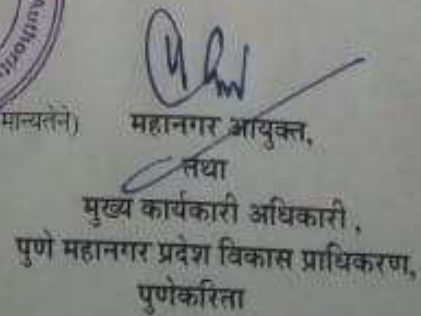 Authorit
मान्यतेने) महानगर आयुक्त,
तथा
मुख्य कार्यकारी अधिकारी,
पुणे महानगर प्रदेश विकास प्राधिकरण,
पुणेकरिता